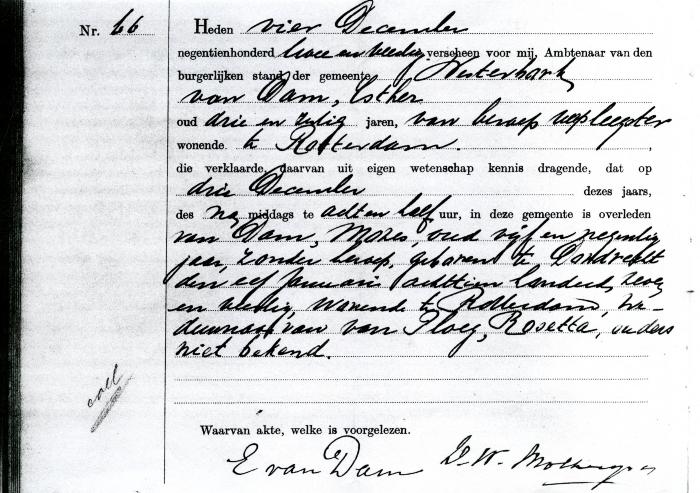 Nr. 66
Heden vier December
negentienhonderd twee en veertig verscheen voor mij, Ambtenaar van den
burgerlijken stand der gemeente Westerbork
van Dam, Esther
oud drie en zestig jaren, van beroep verpleegster
wonende te Rotterdam,
die verklaarde, daarvan uit eigen wetenschap kennis dragende, dat op
drie December dezes jaars,
des na middags te acht en half uur, in deze gemeente is overleden
van Dam, Mozes, oud vijf en negentig
jaar, zonder beroep, geboren te Dordrecht
den elf Januari achttien honderd zeven
en veertig, wonende te Rotterdam, we-
duwnaar van van Ploeg, Rosetta, ouders
niet bekend.
Waarvan akte, welke is voorgelezen.
E van Dam